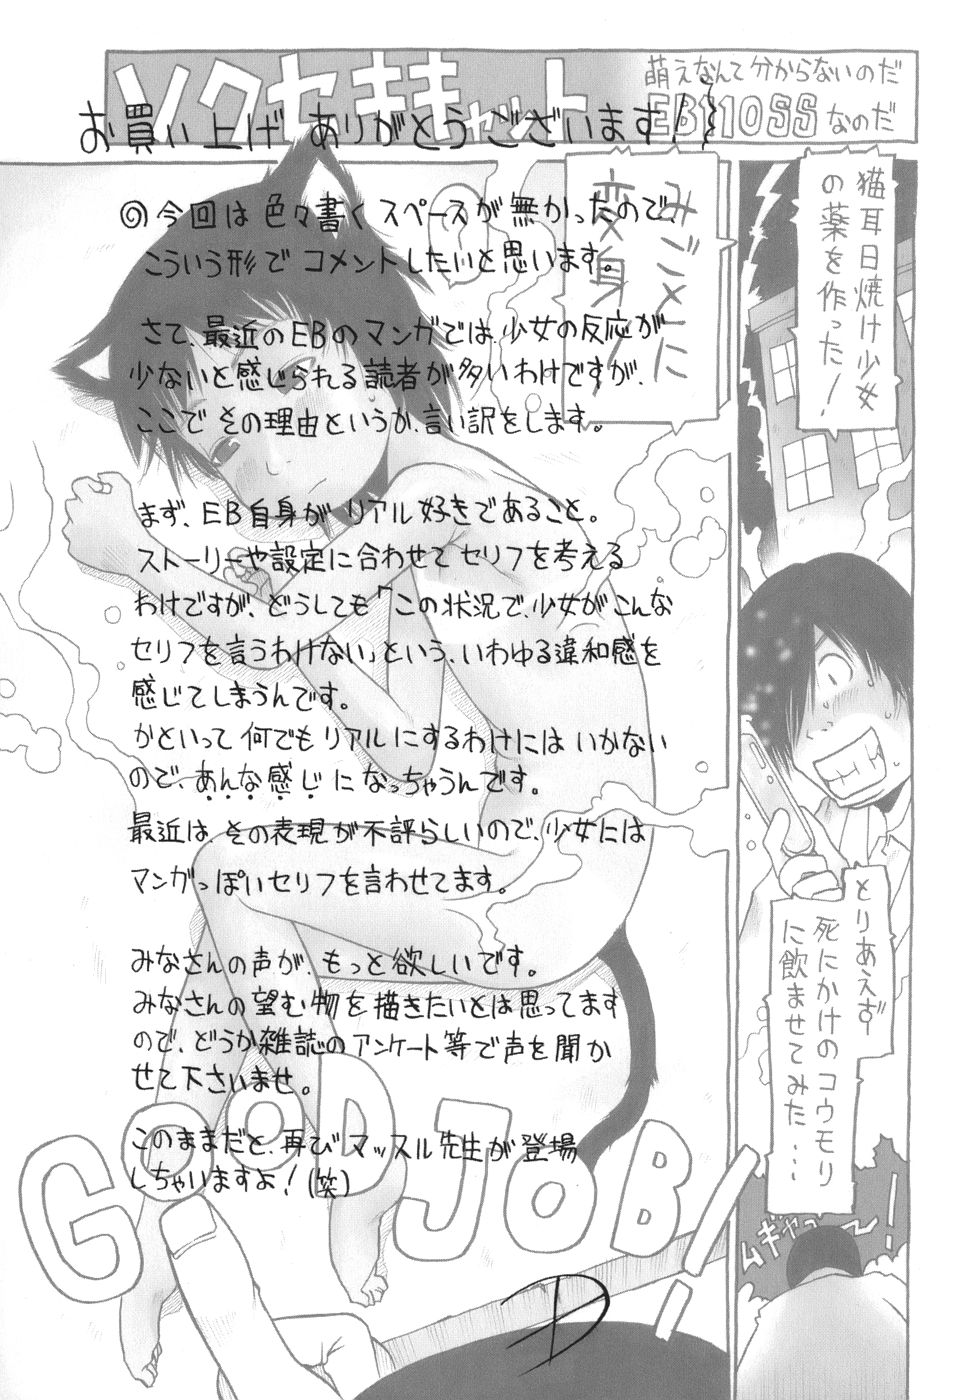 ソクセキキャット
萌えなんて分からないのだ
EB110SSなのだ
お買い上げ ありがとうございます!
◎今回は色々書くスペースが無かったので、
こういう形でコメントしたいと思います。
さて、最近のEBのマンガでは、少女の反応が
少ないと感じられる読者が多いわけですが、
ここでその理由というか、言い訳をします。
まず、EB自身がリアル好きであること。
ストーリーや設定に合わせてセリフを考える
わけですが、どうしても「この状況で、少女がこんな
セリフを言うわけない」という、いわゆる違和感を
感じてしまうんです。
かといって何でもリアルにするわけにはいかない
ので、あんな感じになっちゃうんです。
最近は、その表現が不評らしいので、少女には
マンガっぽいセリフを言わせてます。
みなさんの声が、もっと欲しいです。
みなさんの望む物を描きたいとは思ってます
ので、どうか雑誌のアンケート等で声を聞か
せて下さいませ。
このままだと、再びマッスル先生が登場
しちゃいますよ!(笑)
猫耳日焼け少女
の薬を作った!
とりあえず
死にかけのコウモリ
に飲ませてみた…
ムギャァ〜!
みごとに
変身!
?
GOOD JOB!!